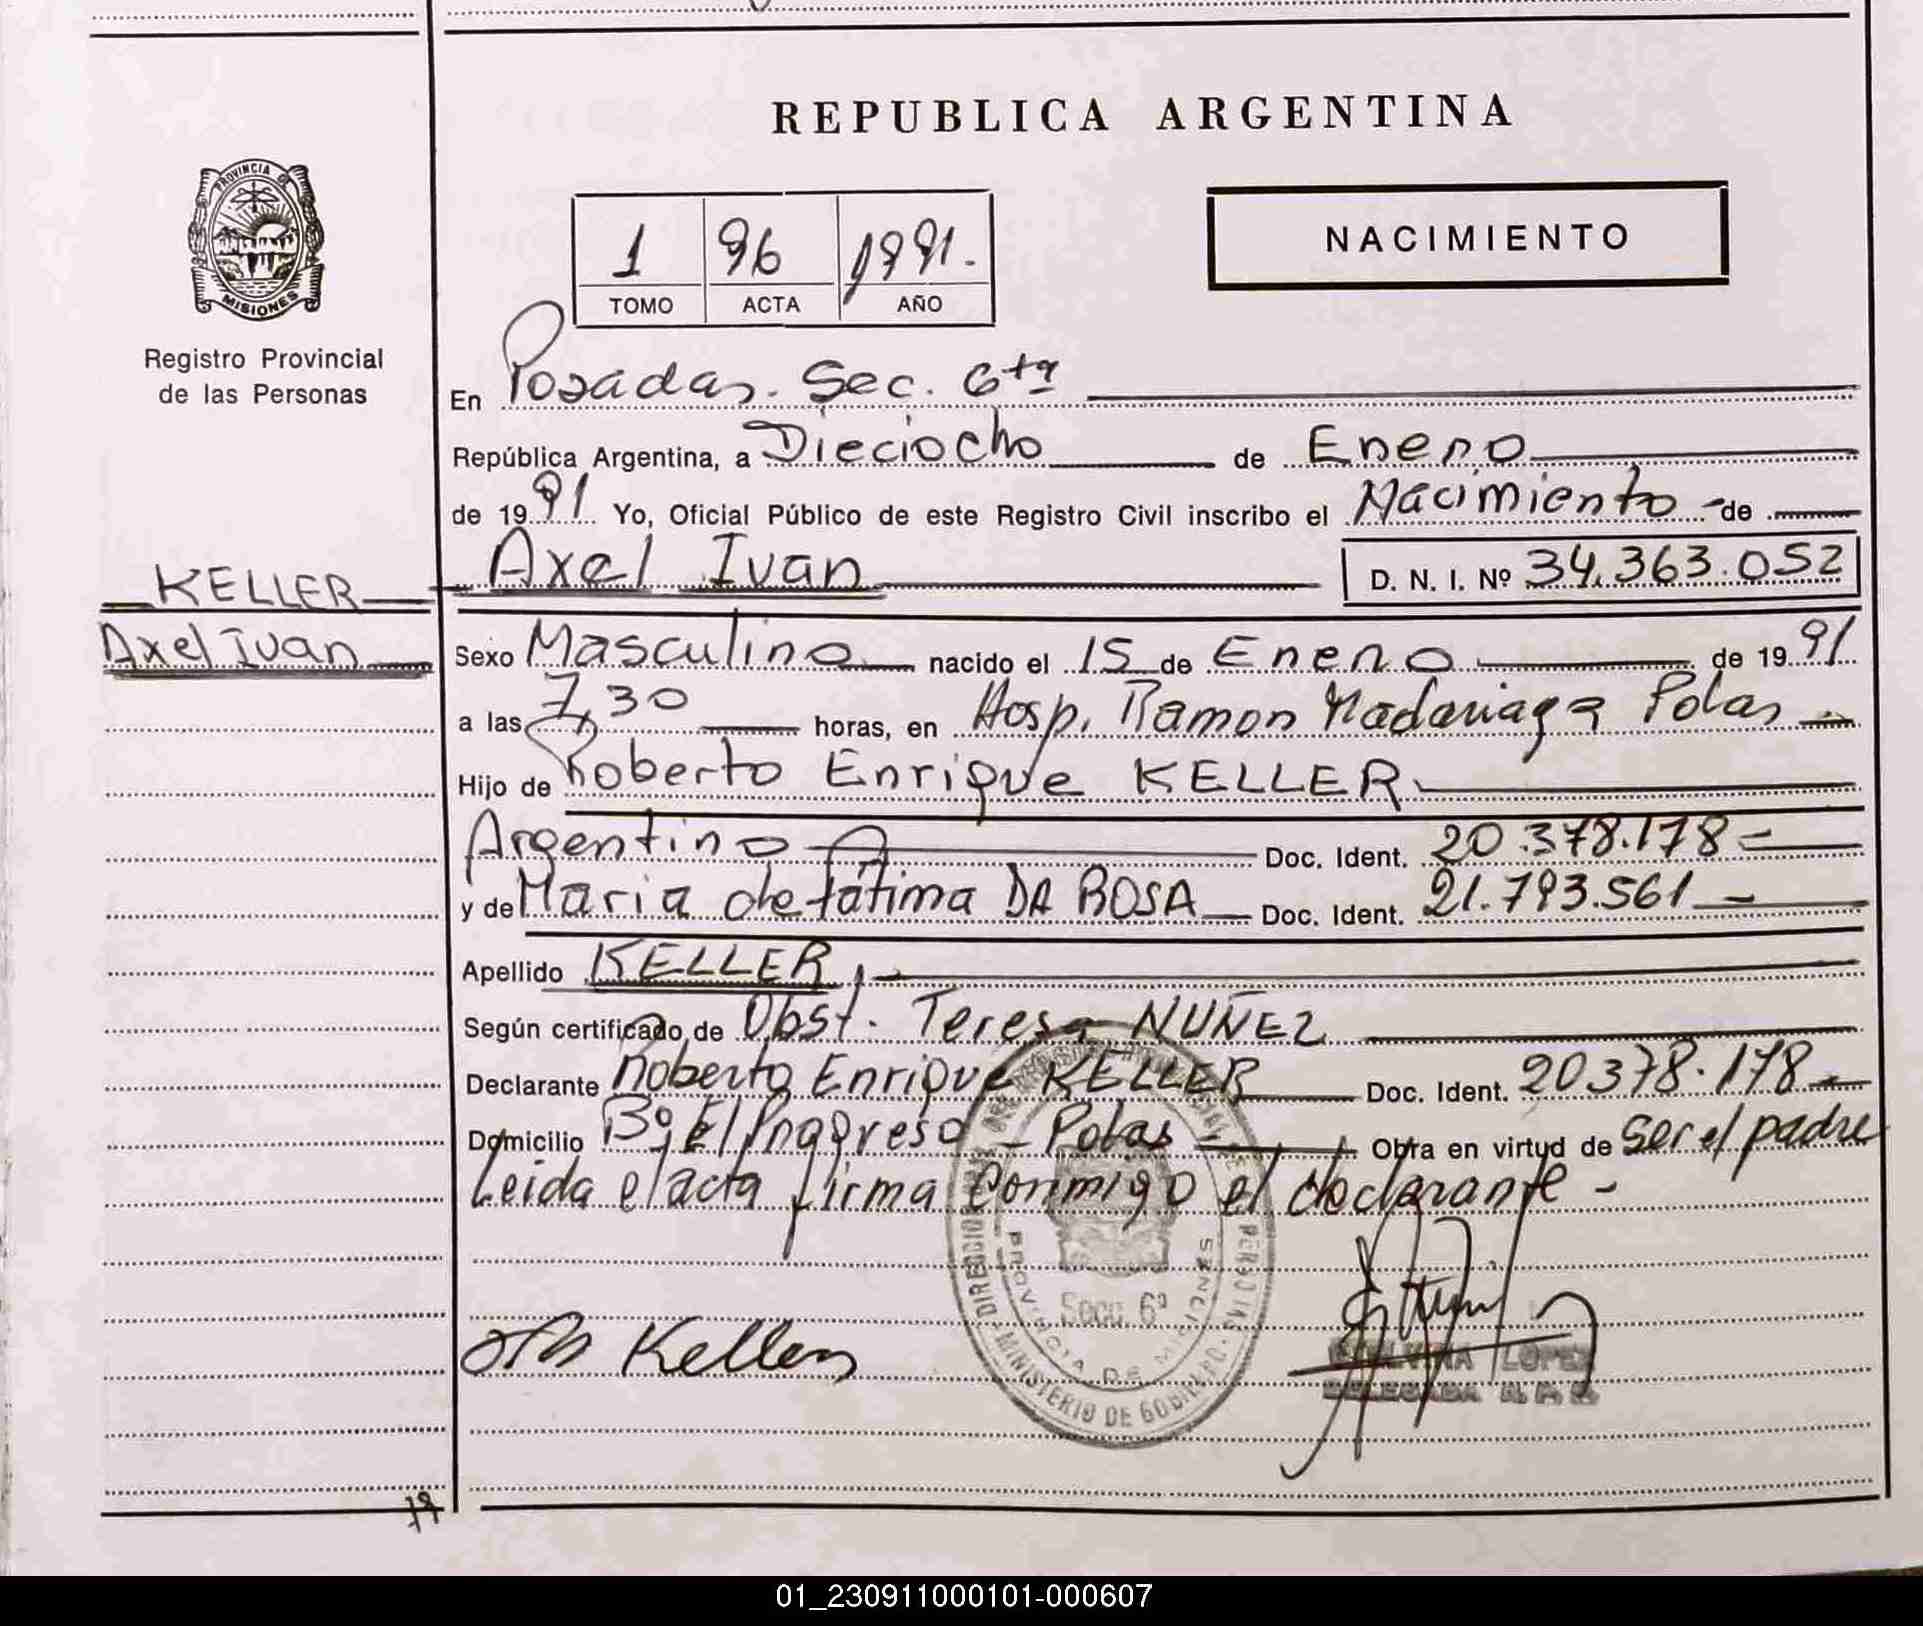 REPUBLICA ARGENTINA
PROVINCIA DE
MISIONES
Registro Provincial
de las Personas
1 96 1991.
TOMO ACTA AÑO
NACIMIENTO
En Posadas. Sec. 6ta
República Argentina, a Dieciocho de Enero
de 1991 Yo, Oficial Público de este Registro Civil inscribo el Nacimiento - de
KELLER
Axel Ivan
Axel Ivan D. N. I. Nº 34.363.052
Sexo Masculino nacido el 15 de Enero de 1991
a las 7,30 horas, en Hosp. Ramon Madariaga Pdas
Hijo de Roberto Enrique KELLER
Argentino Doc. Ident. 20.378.178 -
y de Maria de fátima DA ROSA Doc. Ident. 21.793.561 -
Apellido KELLER, -
Según certificado de Obst. Teresa NUÑEZ
Declarante Roberto Enrique KELLER Doc. Ident. 20378.178 -
Domicilio Bº El Progreso - Pdas - Obra en virtud de ser el padre
Leida el acta firma conmigo el declarante -
PROVINCIA DE MISIONES
Secc. 6ª
MINISTERIO DE GOBIERNO
Keller
LOPEZ
DELEGADA R. P. P.
01_230911000101-000607